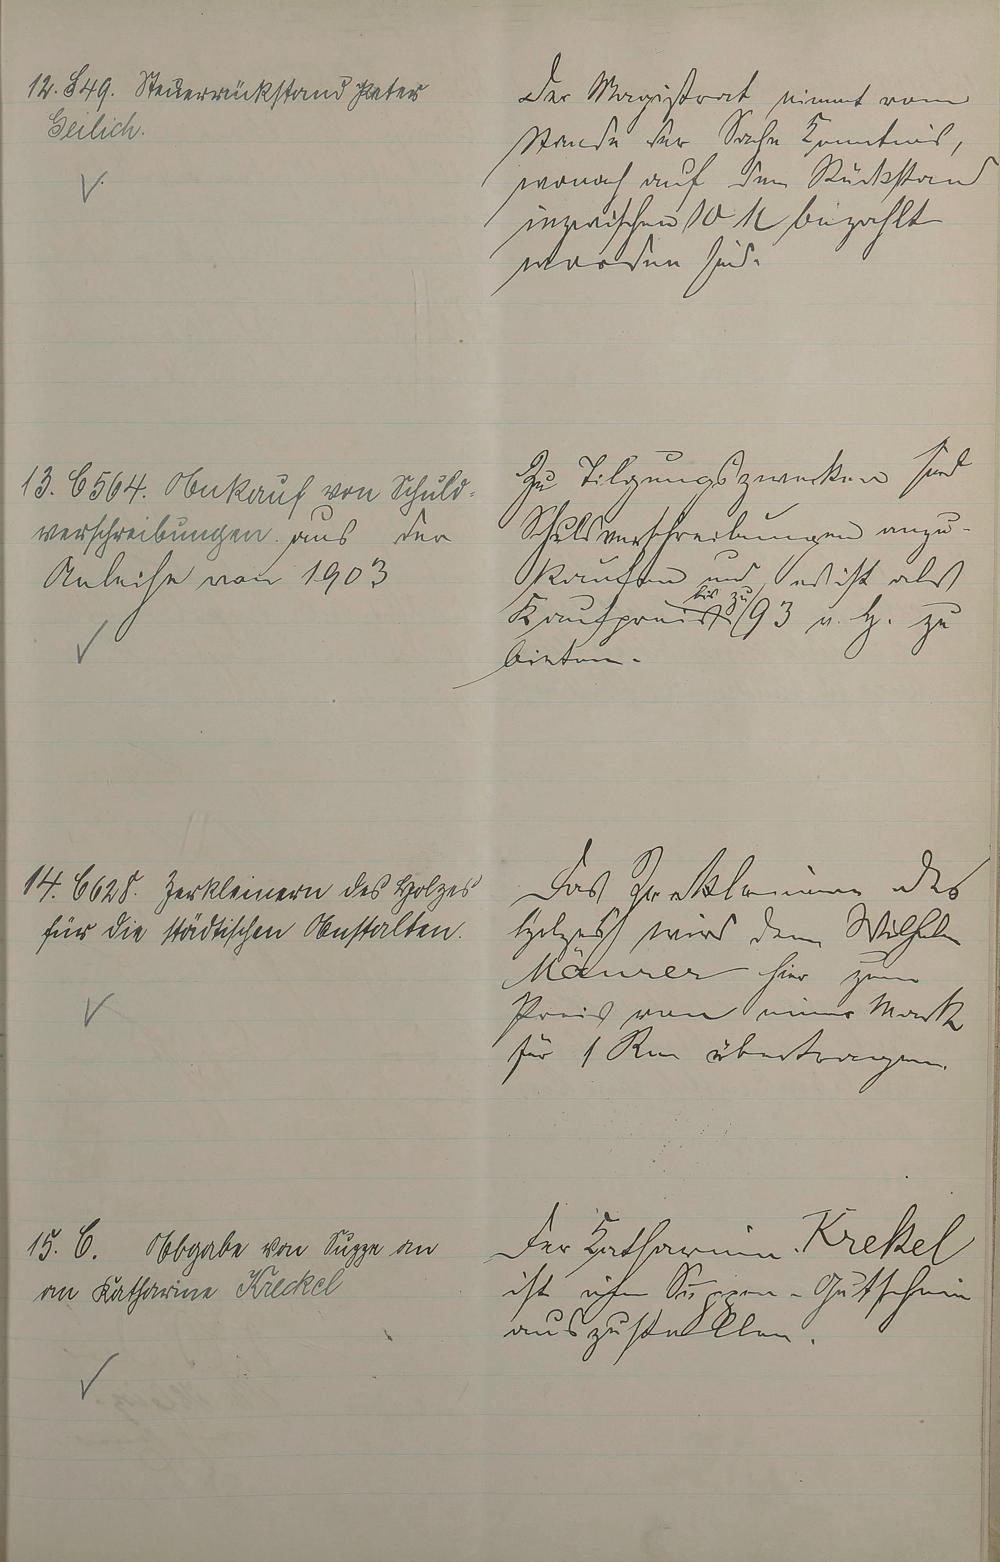 12. 849. Steuerrückstand Peter
Geilich.
Der Magistrat nimmt vom
Stande der Sache Kenntnis,
wonach auf den Rückstand
inzwischen 10 M bezahlt
worden sind.
13. C564. Ankauf von Schuld-
verschreibungen aus der
Anleihe von 1903
Zu Tilgungszwecken sind
Schuldverschreibungen anzu-
kaufen und es ist als
Kaufpreis bis zu 93 v. H. zu
bieten.
14. C628. Zerkleinern des Holzes
für die städtischen Anstalten.
Das Zerkleinern des
Holzes wird dem Wilhelm
Mäurer hier zum
Preis von einer Mark
für 1 Rm übertragen.
15. C. Abgabe von Suppe an
an Katharine Kreckel
Der Katharina Krekel
ist ein Suppen-Gutschein
auszustellen.